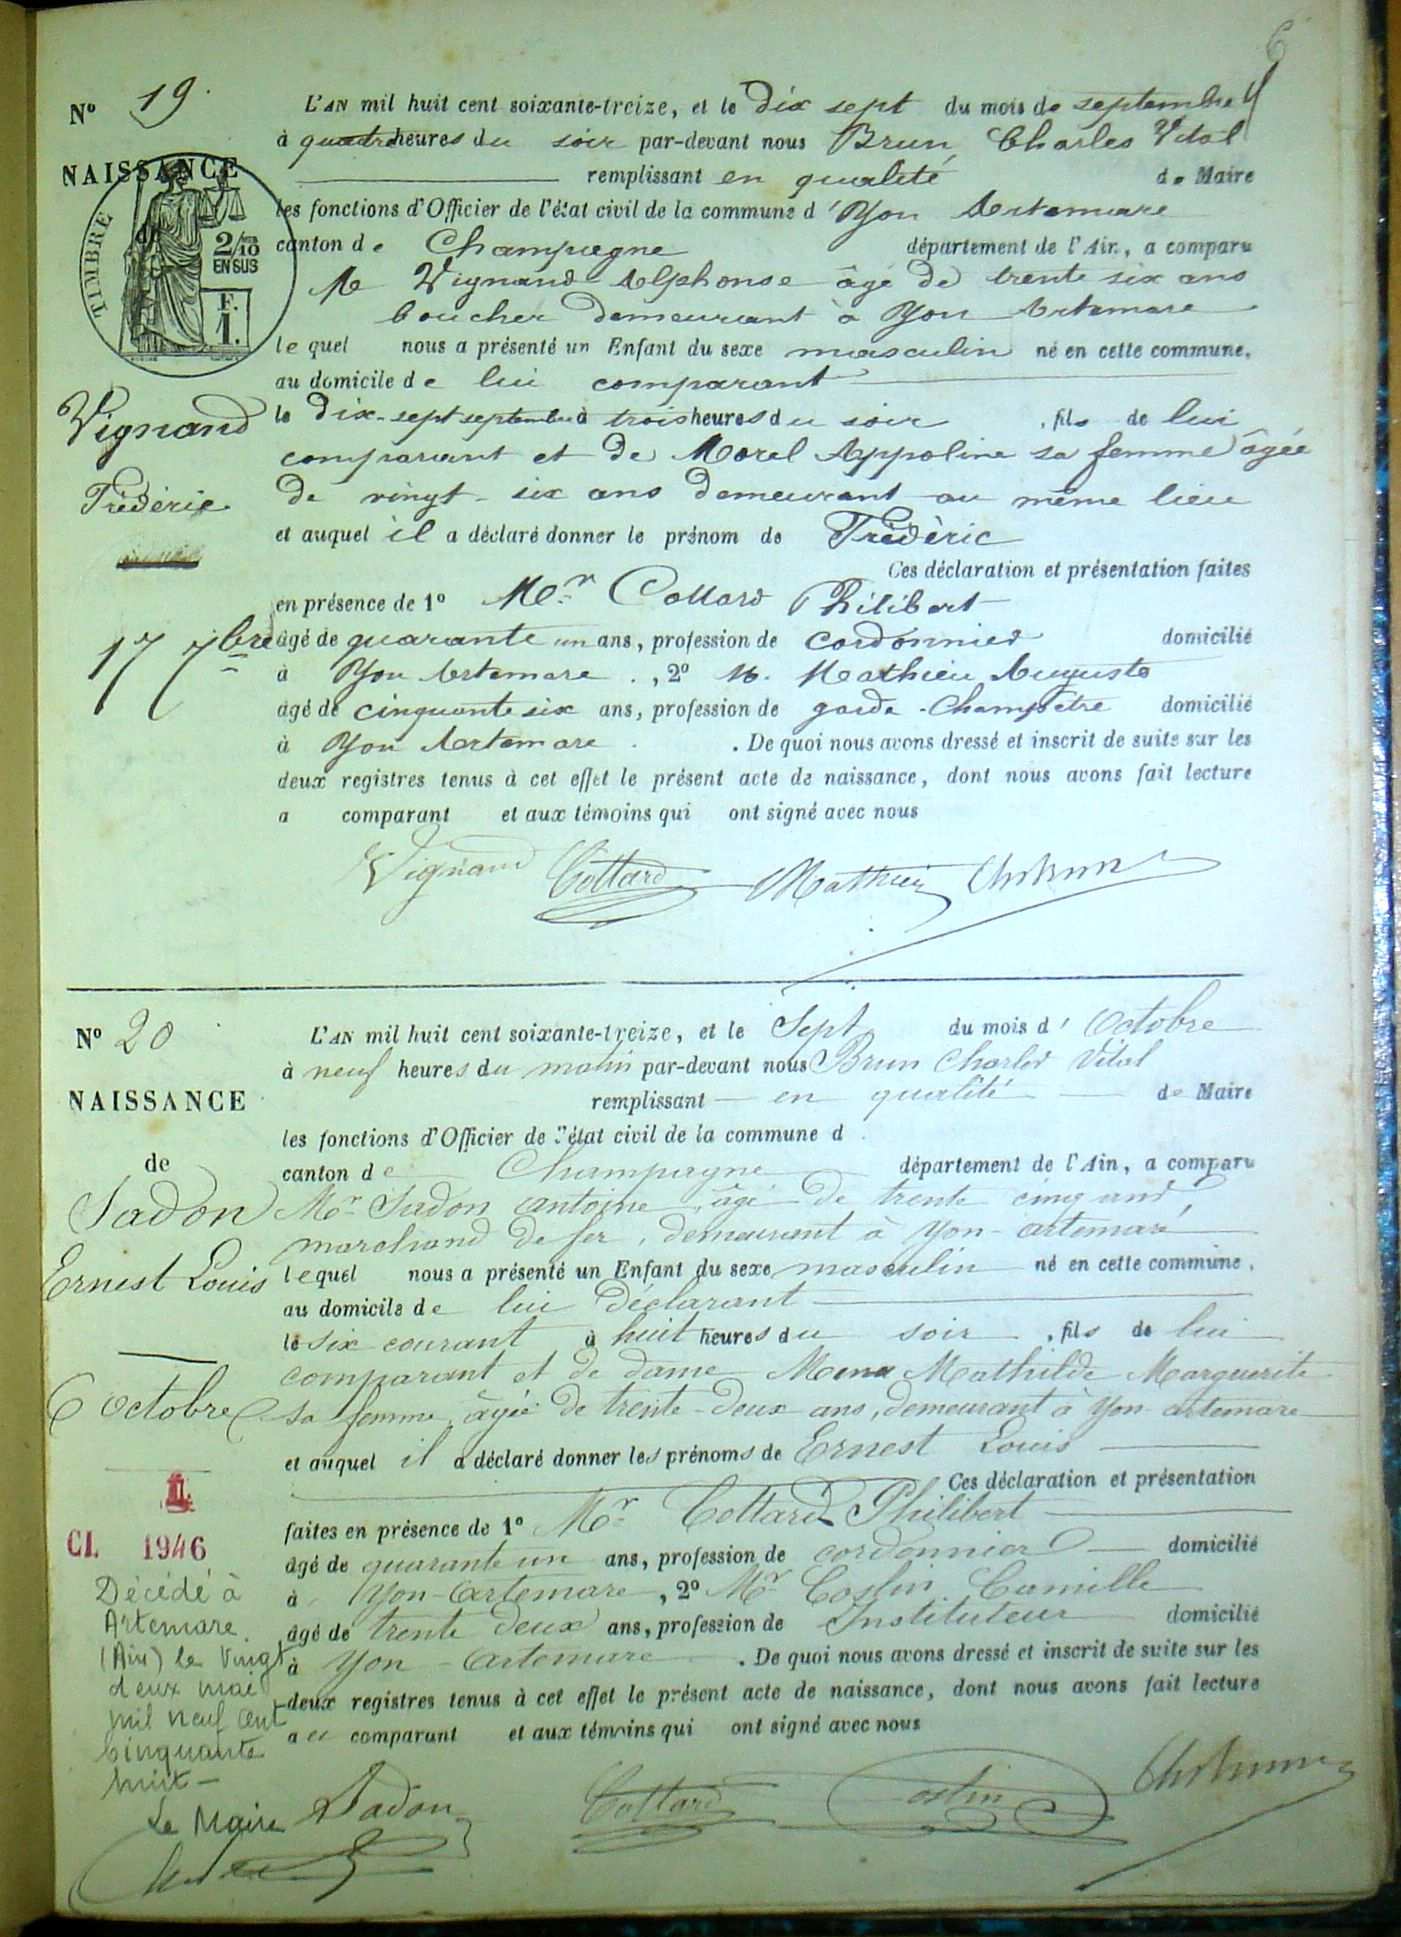 6
N° 19.
NAISSANCE
TIMBRE
2/10
EN SUS
F.
1.
L'AN mil huit cent soixante-treize, et le dix sept du mois de septembre
à quatre heures du soir par-devant nous Brun Charles Vital
remplissant en qualité de Maire
les fonctions d'Officier de l'état civil de la commune d'Yon Artemare
canton de Champagne département de l'Ain, a comparu
M Vignand Alphonse âgé de trente six ans
boucher demeurant à Yon Artemare
lequel nous a présenté un Enfant du sexe masculin né en cette commune,
au domicile de lui comparant
Vignand
Frédéric
17 7bre
le dix-sept septembre à trois heures du soir, fils de lui
comparant et de Morel Appoline sa femme âgée
de vingt-six ans demeurant au même lieu
et auquel il a déclaré donner le prénom de Frédèric
Ces déclaration et présentation faites
en présence de 1° Mr Collard Philibert
âgé de quarante un ans, profession de cordonnier domicilié
à Yon Artemare, 2° M. Mathieu Auguste
âgé de cinquante six ans, profession de garde-Champètre domicilié
à Yon Artemare. De quoi nous avons dressé et inscrit de suite sur les
deux registres tenus à cet effet le présent acte de naissance, dont nous avons fait lecture
a comparant et aux témoins qui ont signé avec nous
Vignand Cottard Mathieu Ch Brun
N° 20
NAISSANCE
de
Sadon
Ernest Louis
6 Octobre
L'AN mil huit cent soixante-treize, et le Sept du mois d'Octobre
à neuf heures du matin par-devant nous Brun Charles Vital
remplissant en qualité de Maire
les fonctions d'Officier de l'état civil de la commune d
canton de Champagne département de l'Ain, a comparu
Mr Sadon Antoine, âgé de trente cinq ans
marchand de fer, demeurant à Yon-Artemare
lequel nous a présenté un Enfant du sexe masculin né en cette commune,
au domicile de lui déclarant
le six courant à huit heures du soir, fils de lui
comparant et de dame Mathilde Marguerite
sa femme, âgée de trente-deux ans, demeurant à Yon-Artemare
et auquel il a déclaré donner les prénoms de Ernest Louis
Ces déclaration et présentation
faites en présence de 1° Mr Cottard Philibert
âgé de quarante un ans, profession de cordonnier domicilié
à Yon-Artemare, 2° Mr Coslin Camille
âgé de trente deux ans, profession de Instituteur domicilié
à Yon-Artemare. De quoi nous avons dressé et inscrit de suite sur les
deux registres tenus à cet effet le présent acte de naissance, dont nous avons fait lecture
au comparant et aux témoins qui ont signé avec nous
CI. 1946
Décédé à
Artemare
(Ain) le Vingt
deux mai
mil neuf cent
Cinquante
huit –
Le Maire
Sadon Cottard Coslin Ch Brun